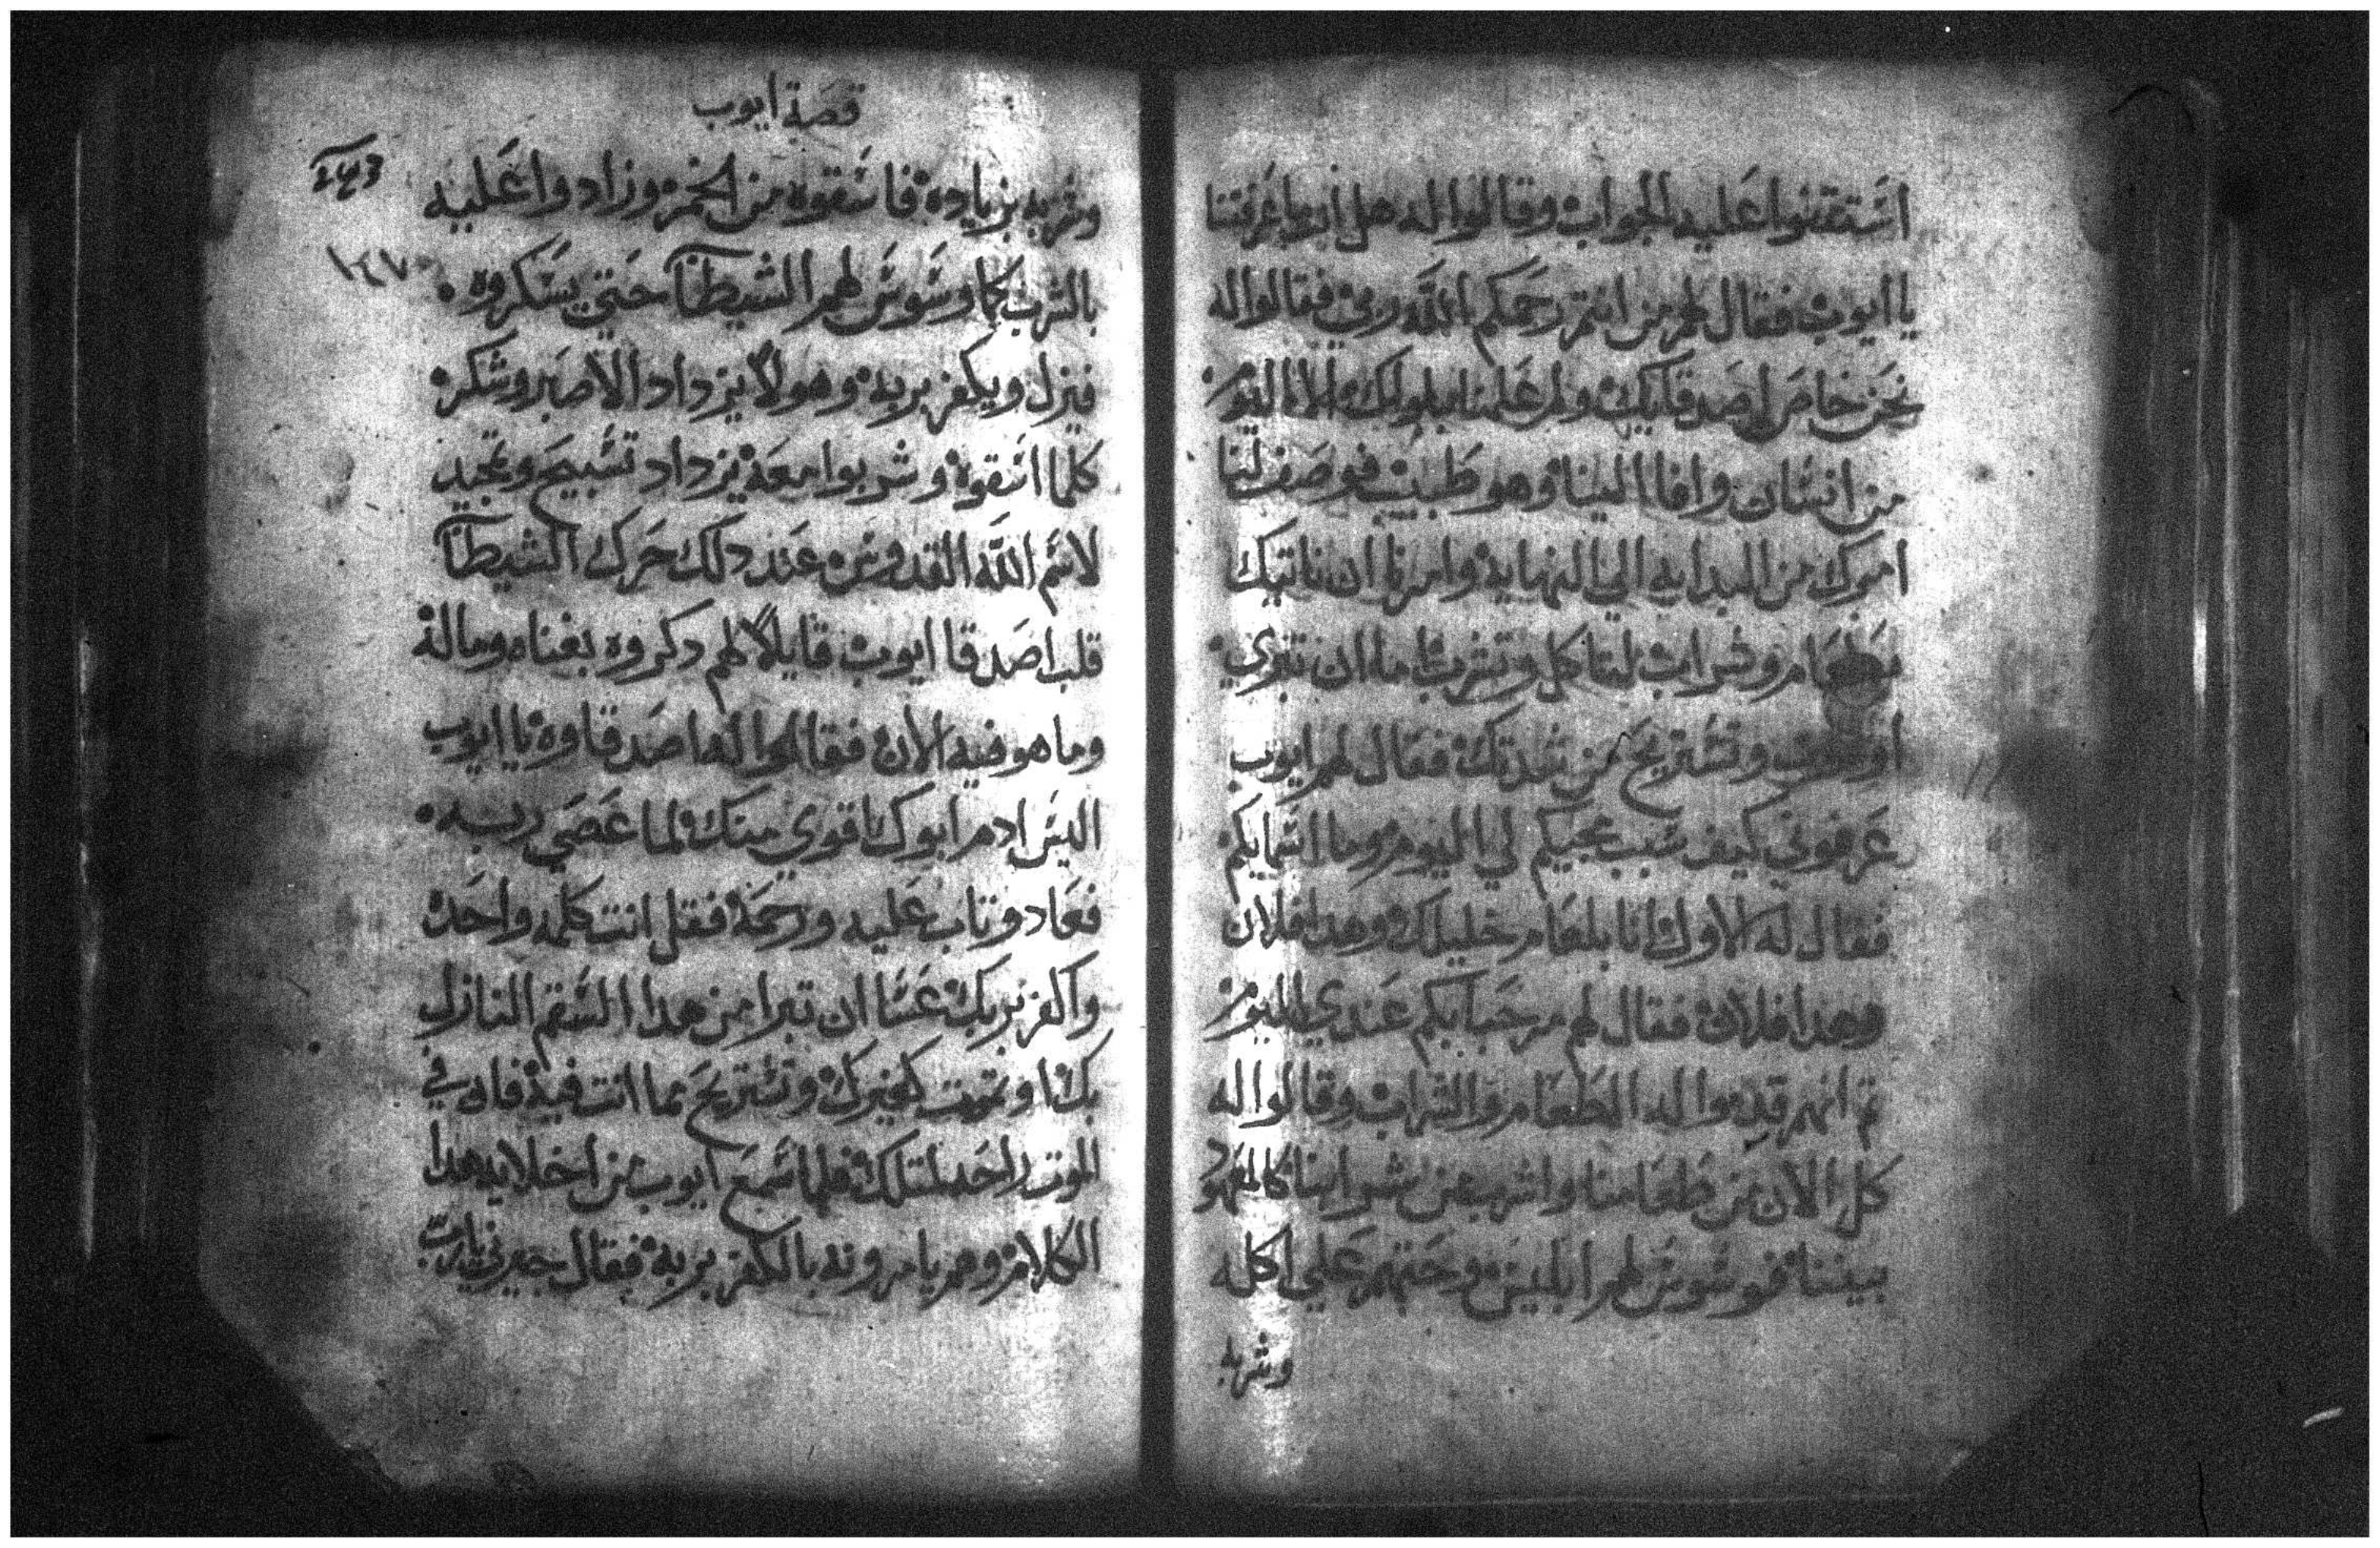 استقتلوا عليه الجواب وقالوا له هل انت ما عرفتنا
يا ايوب فقال لهم من انتم رحمكم الله ربي فقالوا له
نحن خاص اصدقايك ولم علمنا ببلوك الا اليوم
من انسان وافا الينا وهو طبيب فوصف لنا
امرك من البدايه الي النهاية وامرنا ان ناتيك
بطعام وشراب لتاكل وتشرب اما ان تبري
او وتستريح من شدتك فقال لهم ايوب
عرفوني كيف سبب مجيكم لي اليوم وما اسمايكم
فقال له الاول انا بلعام خليلك وهدا فلان
وهدا فلان فقال لهم مرحبا بكم عندي اليوم
تم انهم قدموا له الطعام والشراب وقالوا له
كل الان من طعامنا واشرب من شرابنا كالمعهود
بيننا فوسوس لهم ابليس وحتهم علي اكله
وشربه
قصة ايوب
وشربه بزياده فاسقوه من الخمر وزادوا عليه
بالشرب كما وسوس لهم الشيطان حتي يسكروه
فيزل ويكفر بربه وهو لا يزداد الا صبر وشكر
كلما اسقوه وشربوا معه يزداد تسبيح وتمجيد
لاسم الله القدوس عند دلك حرك الشيطان
قلب اصدقا ايوب قايلا لهم دكروه بغناه وماله
وما هو فيه الان فقالوا له اصدقاوه يا ايوب
اليس ادم ابوك ناقوي منك لما عصي ربه
فعاد وتاب عليه ورحمه فقل انت كلمه واحده
واكفر بربك عسا ان تبرا من هدا السقم النازل
بك او تموت كغيرك وتستريح مما انت فيه فان في
الموت راحه لمتلك فلما سمع ايوب من اخلايه هدا
الكلام وهم يامرونه بالكفر بربه فقال جيرني يارب
١٤٧